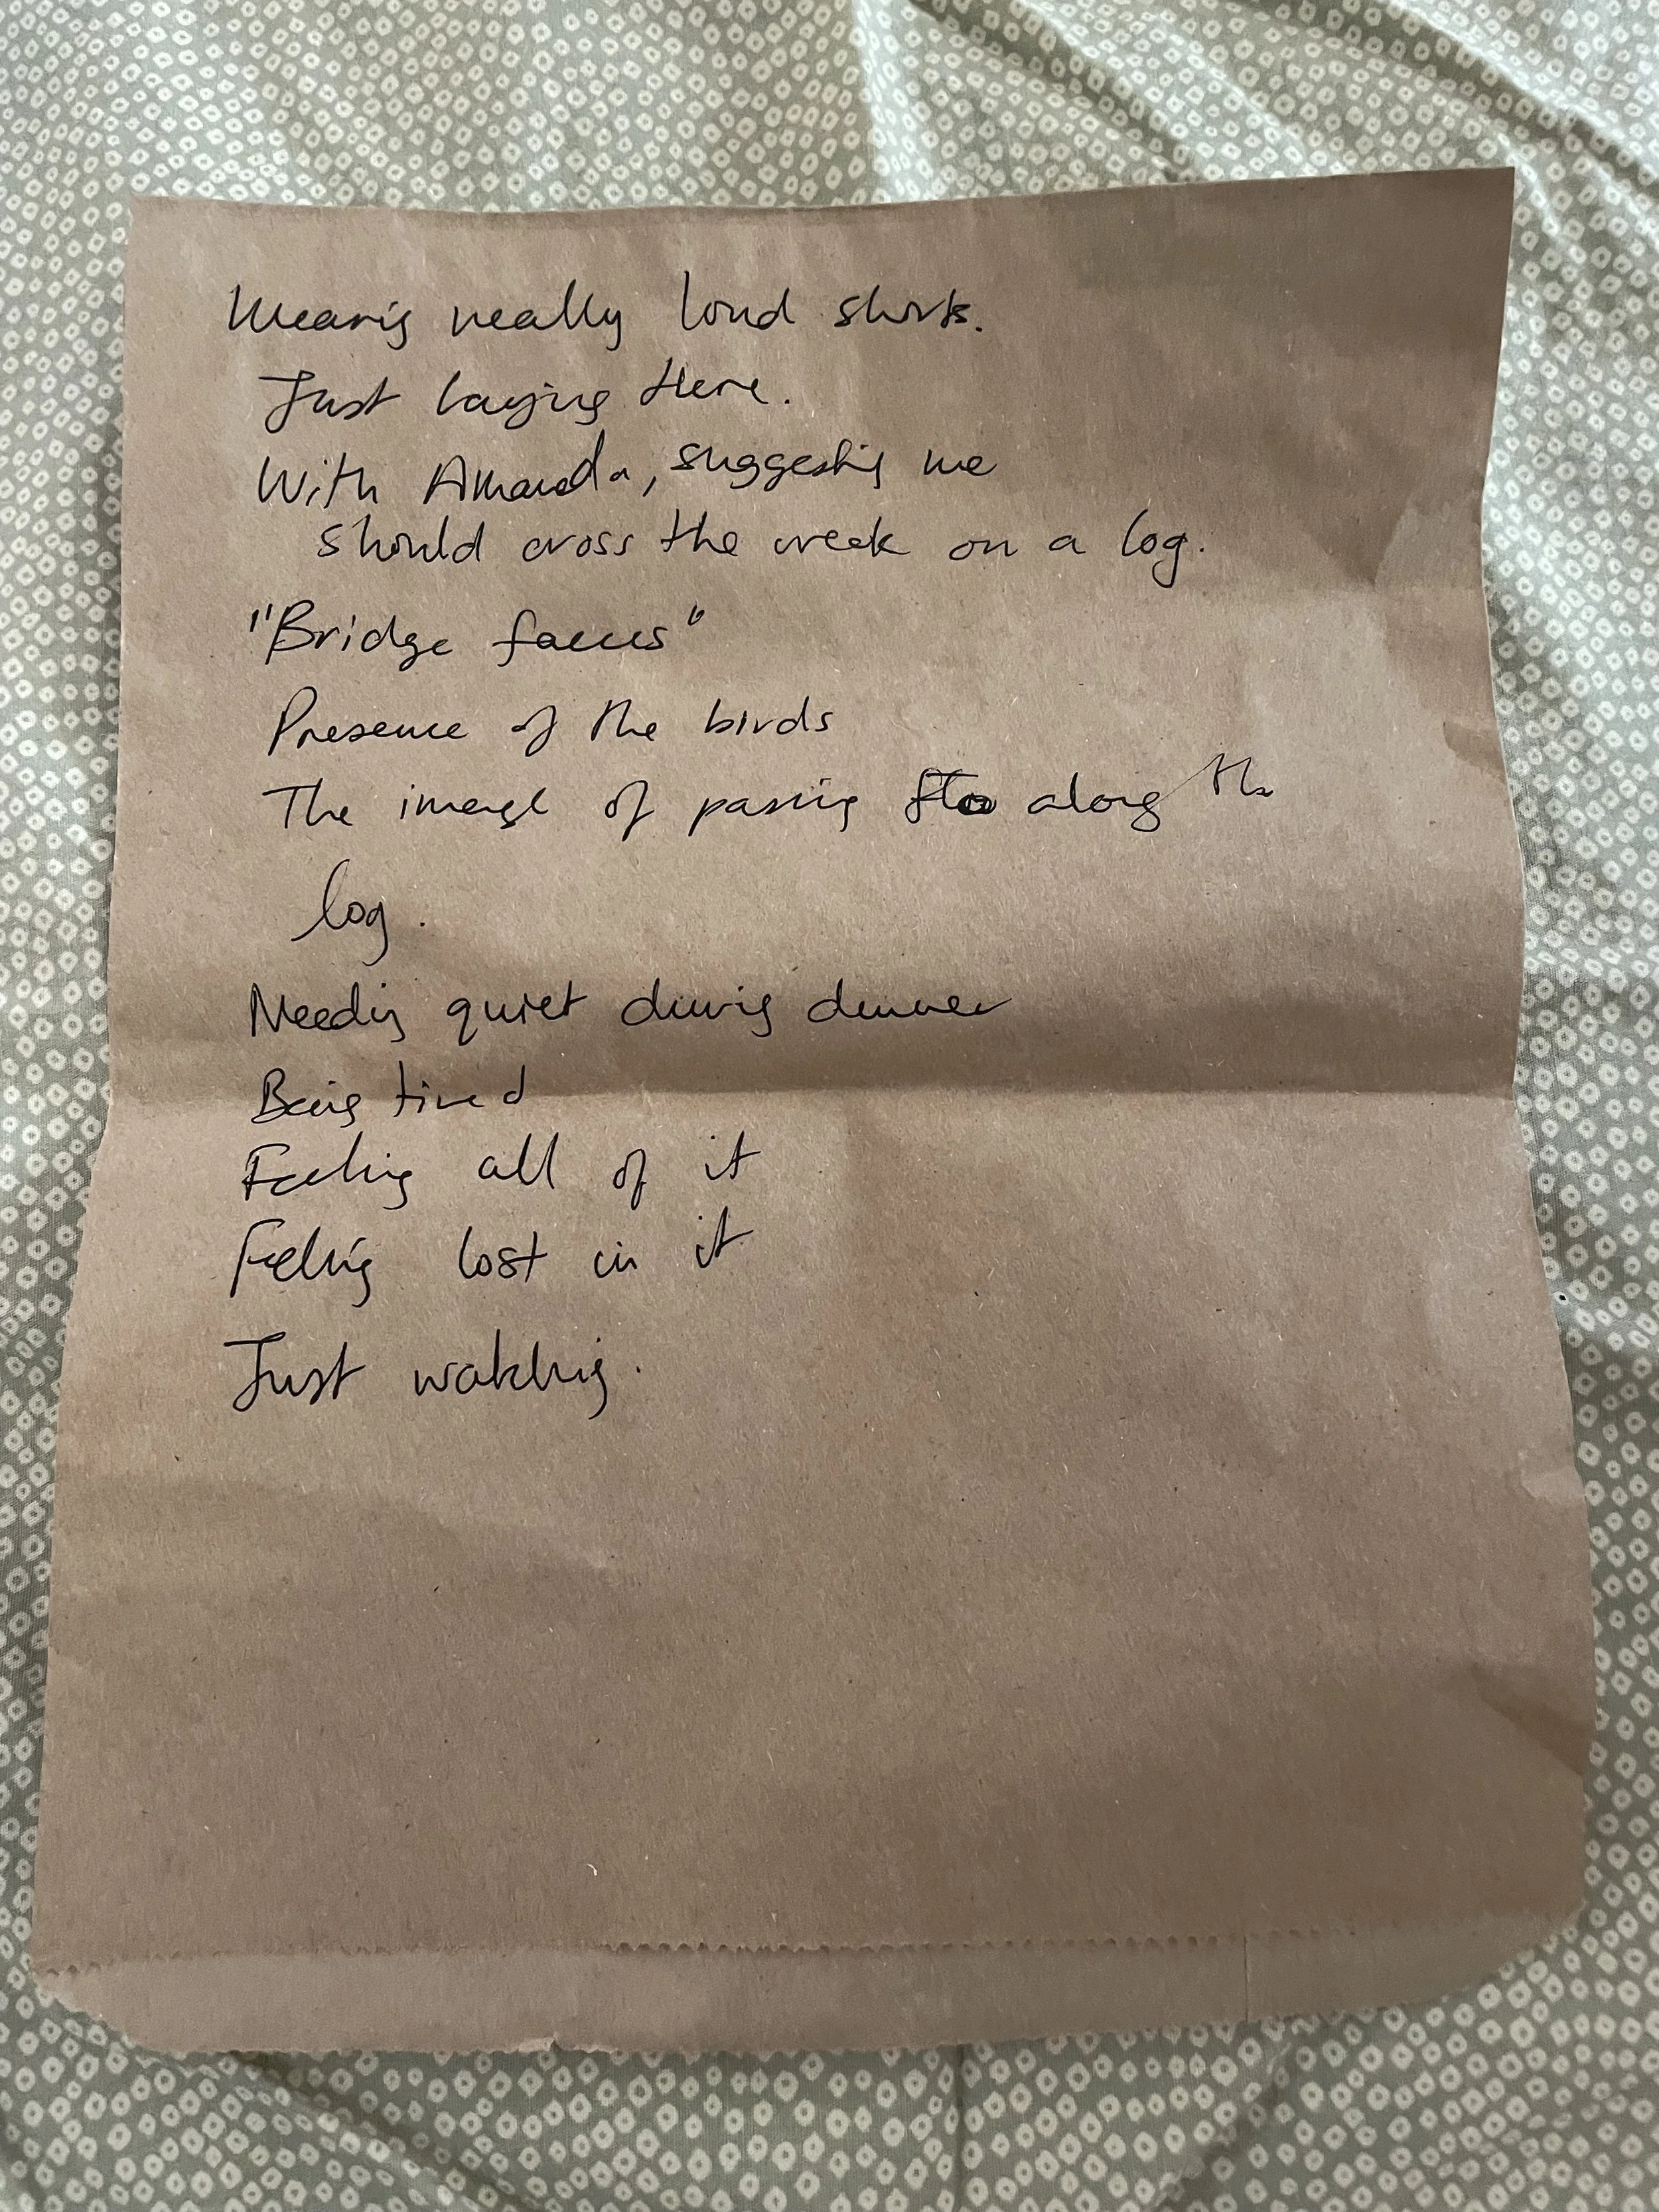 Wearing really loud shirts.
Just laying there.
With Amanda, suggesting we
should cross the creek on a log.
"Bridge faeces"
Presence of the birds
The image of passing along the
log.
Needing quiet during dinner
Being tired
Feeling all of it
Feeling lost in it
Just watching.